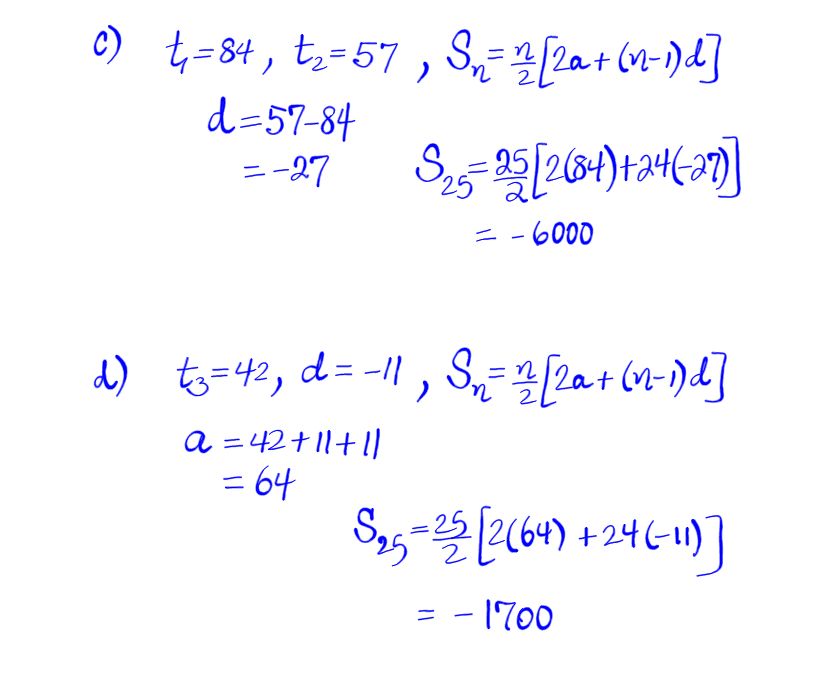 c) t₁=84, t₂=57, Sₙ=n/2[2a+(n-1)d]
d=57-84
=-27
S₂₅=25/2[2(84)+24(-27)]
= -6000
d) t₃=42, d=-11, Sₙ=n/2[2a+(n-1)d]
a=42+11+11
=64
S₂₅=25/2[2(64)+24(-11)]
= -1700